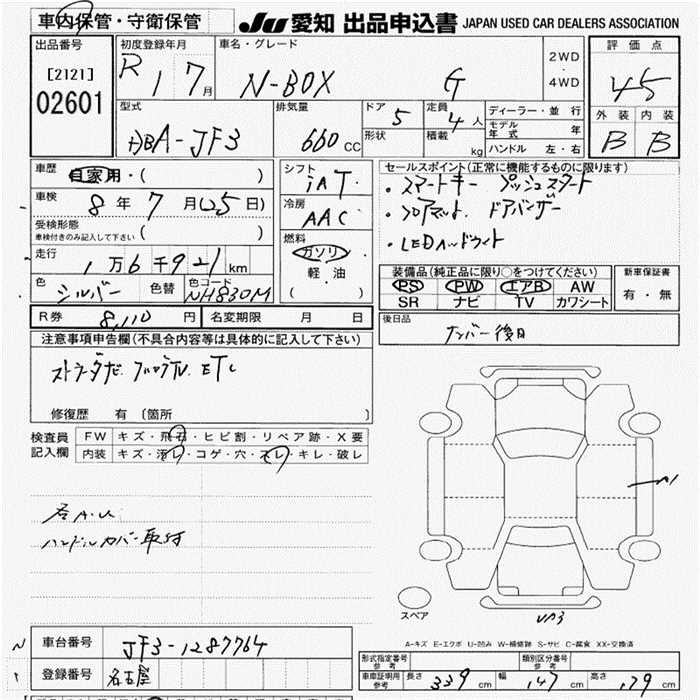 車内保管・守衛保管 JU 愛知 出品申込書 JAPAN USED CAR DEALERS ASSOCIATION
出品番号 初度登録年月 車名・グレード 2WD・4WD 評価点
[2121] R 1 7月 N-BOX G 4.5
02601 型式 排気量 ドア 定員 ディーラー・並行 外装 内装
DBA-JF3 660cc 5 4人 モデル年式 年 B B
形状 積載 kg ハンドル 左・右
車歴 自家用・( ) シフト セールスポイント(正常に機能するものに限ります)
車検 8年 7月(25日) iAT ・スマートキー プッシュスタート
受検形態 冷房 ・フロアマット、ドアバイザー
車検付きのみ記入して下さい ( ) AAC ・LEDヘッドライト
走行 1万6千921km 燃料 ガソリン 装備品(純正品に限り○をつけてください) 新車保証書
色 シルバー 色替 色コード NH830M 軽油 PS PW エアB AW 有・無
( ) SR ナビ TV カワシート
R券 8,110円 名変期限 月 日 後日品
注意事項申告欄(不具合内容等は具体的に記入して下さい) ナンバー後日
ストラーダナビ、フルセグTV、ETC
修復歴 有 〔箇所 〕
検査員 FW キズ・飛石・ヒビ割・リペア跡・X要
記入欄 内装 キズ・汚レ・コゲ・穴・スレ・キレ・破レ
A1
各A.U
ハンドルカバー取付
スペア
UA3
A-キズ E-エクボ U-凹み W-補修跡 S-サビ C-腐食 XX-交換済
車台番号 JF3-1287764
形式指定番号 参考 類別区分番号 参考
登録番号 名古屋 車庫証明用参考 長さ 339cm 幅 147cm 高さ 179cm